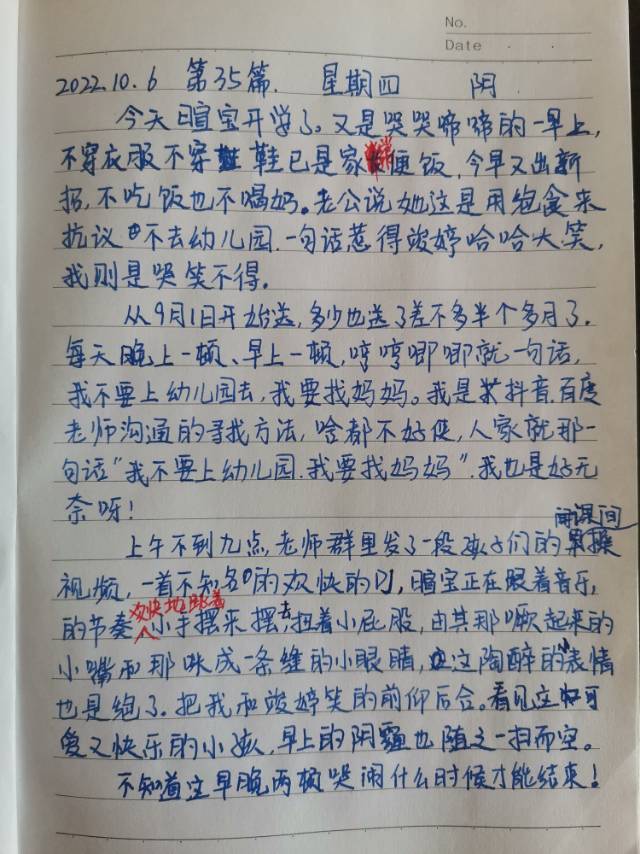 No.
Date
2022.10.6 第35篇. 星期四 阴
今天暄宝开学了。又是哭哭啼啼的一早上,
不穿衣服不穿鞋已是家常便饭,今早又出新
招,不吃饭也不喝奶。老公说她这是用绝食来
抗议不去幼儿园.一句话惹得竣婷哈哈大笑,
我则是哭笑不得。
从9月1日开始送,多少也送了差不多半个多月了.
每天晚上一顿、早上一顿,哼哼唧唧就一句话,
我不要上幼儿园去,我要找妈妈。我是抖音.百度
老师沟通的寻找方法,啥都不好使,人家就那一
句话"我不要上幼儿园.我要找妈妈".我也是好无
奈呀!
课间
上午不到九点,老师群里发了一段孩子们的操
视频,一首不知名的欢快的DJ,暄宝正在跟着音乐
欢快地跳着
的节奏小手摆来摆去,扭着小屁股,由其那噘起来的
小嘴和那眯成一条缝的小眼睛,这陶醉的小表情
也是绝了.把我和竣婷笑的前仰后合。看见这如可
爱又快乐的小孩,早上的阴霾也随之一扫而空。
不知道这早晚两顿哭闹什么时候才能结束!